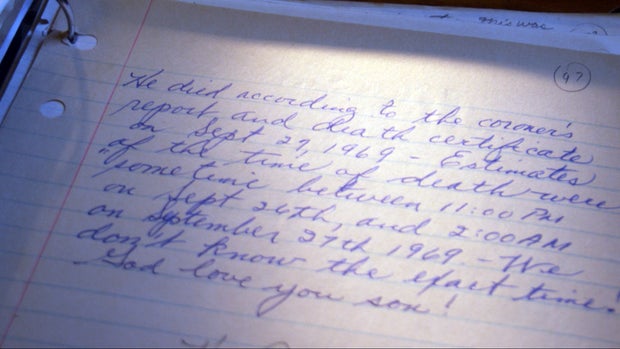 this was
97
He died according to the coroner's
report and death certificate
on Sept 27, 1969 - Estimates
of the time of death were
"sometime between 11:00 PM
on Sept 26th, and 2:00 AM
on September 27th 1969. - We
don't know the exact time!
God love you son!